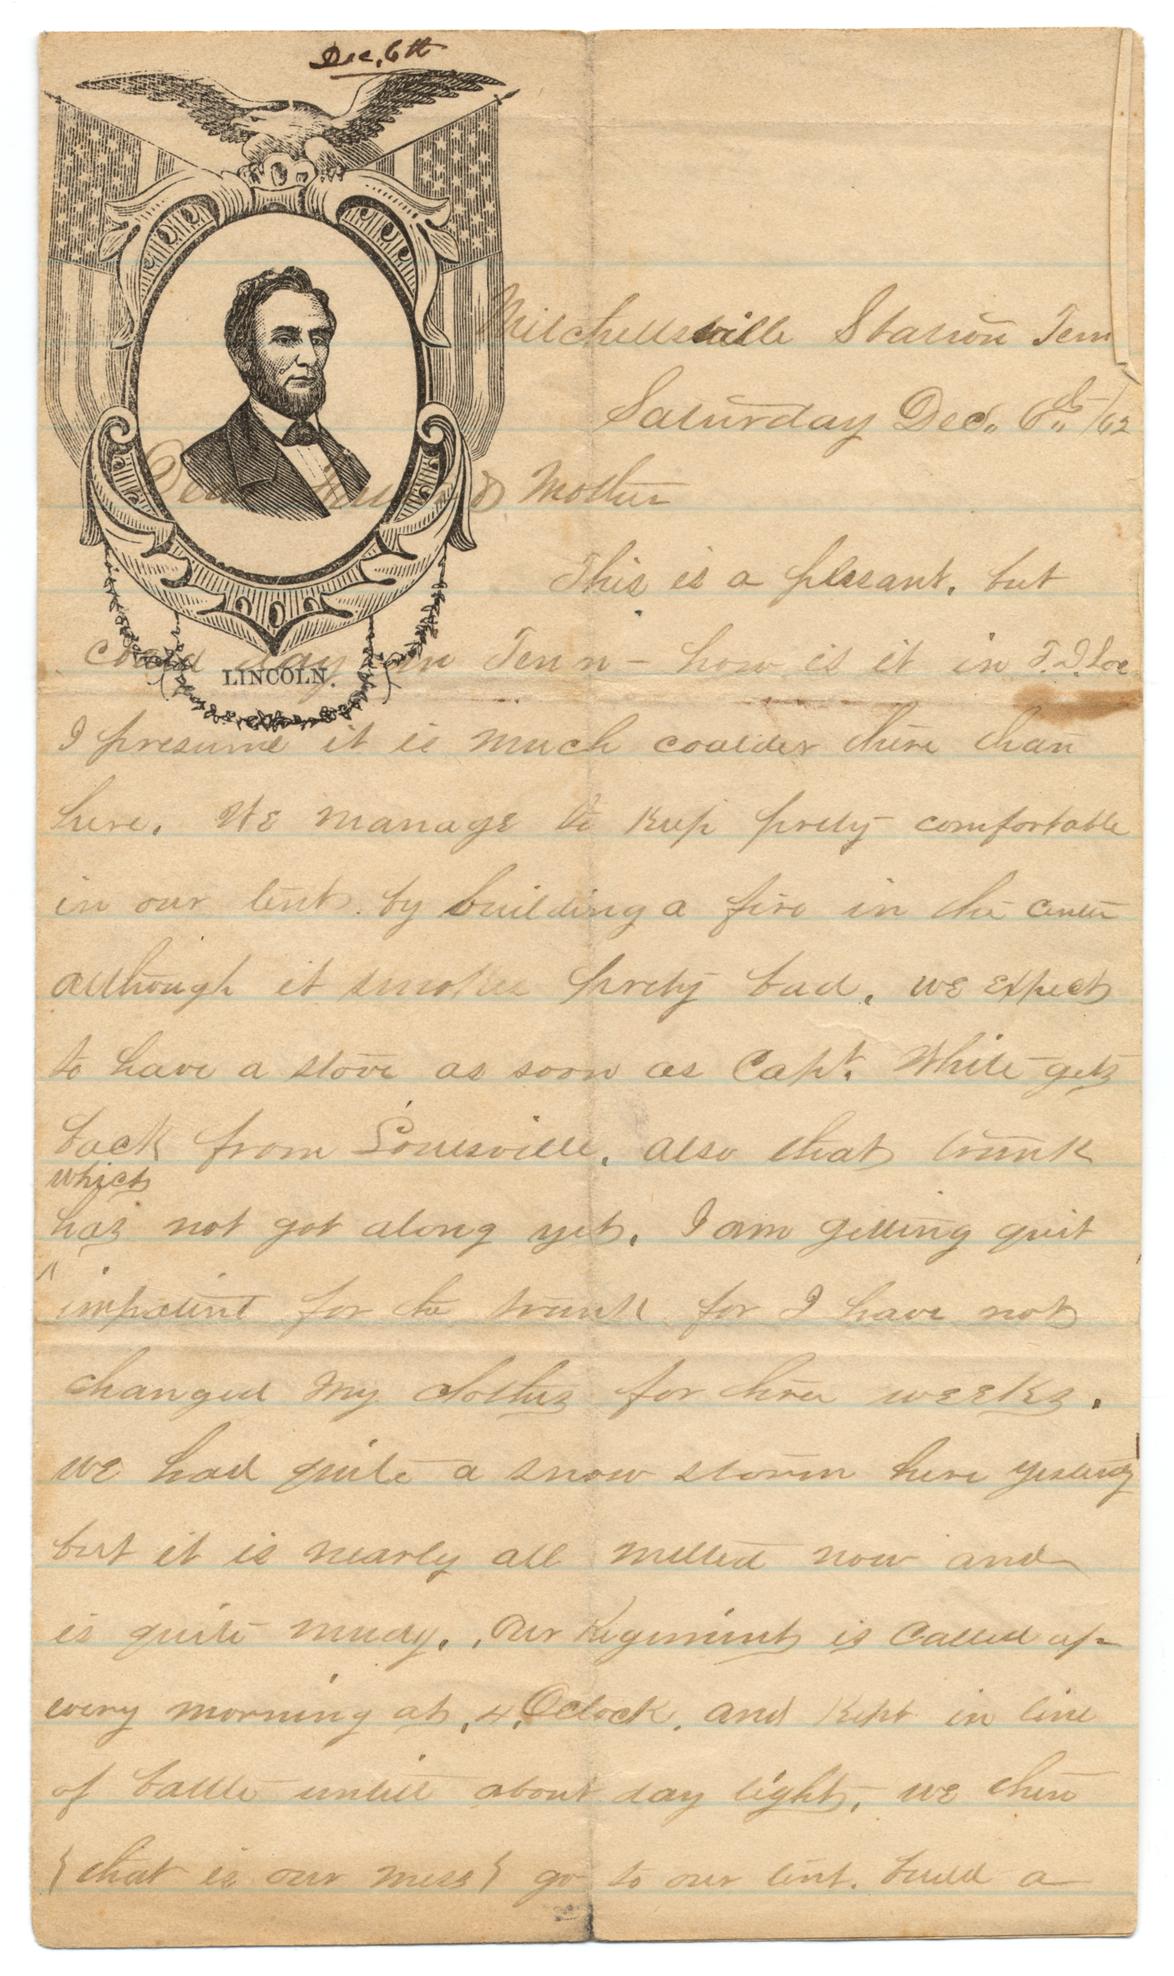 Dec. 6th
Mitchellsville Station Tenn
Saturday Dec. 6th /62
Dear & Mother
This is a plesant, but
coald day in Tenn - how is it in
LINCOLN.
I presume it is much coalder there than
here. We manage to keep prety comfortable
in our tent by building a fire in the center
although it smokes prety bad. we expect
to have a stove as soon as Capt. White gets
back from Louisville, also that trunk
which
has not got along yet. I am getting quit
^
impatient for the trunk for I have not
changed my clothes for three weeks.
we had quite a snow storm here yesterday
but it is nearly all melted now and
is quite mudy. Our Regiment is called up
every morning at 4, Oclock, and kept in line
of battle untill about day light, we then
{that is our mess} go to our tent. build a